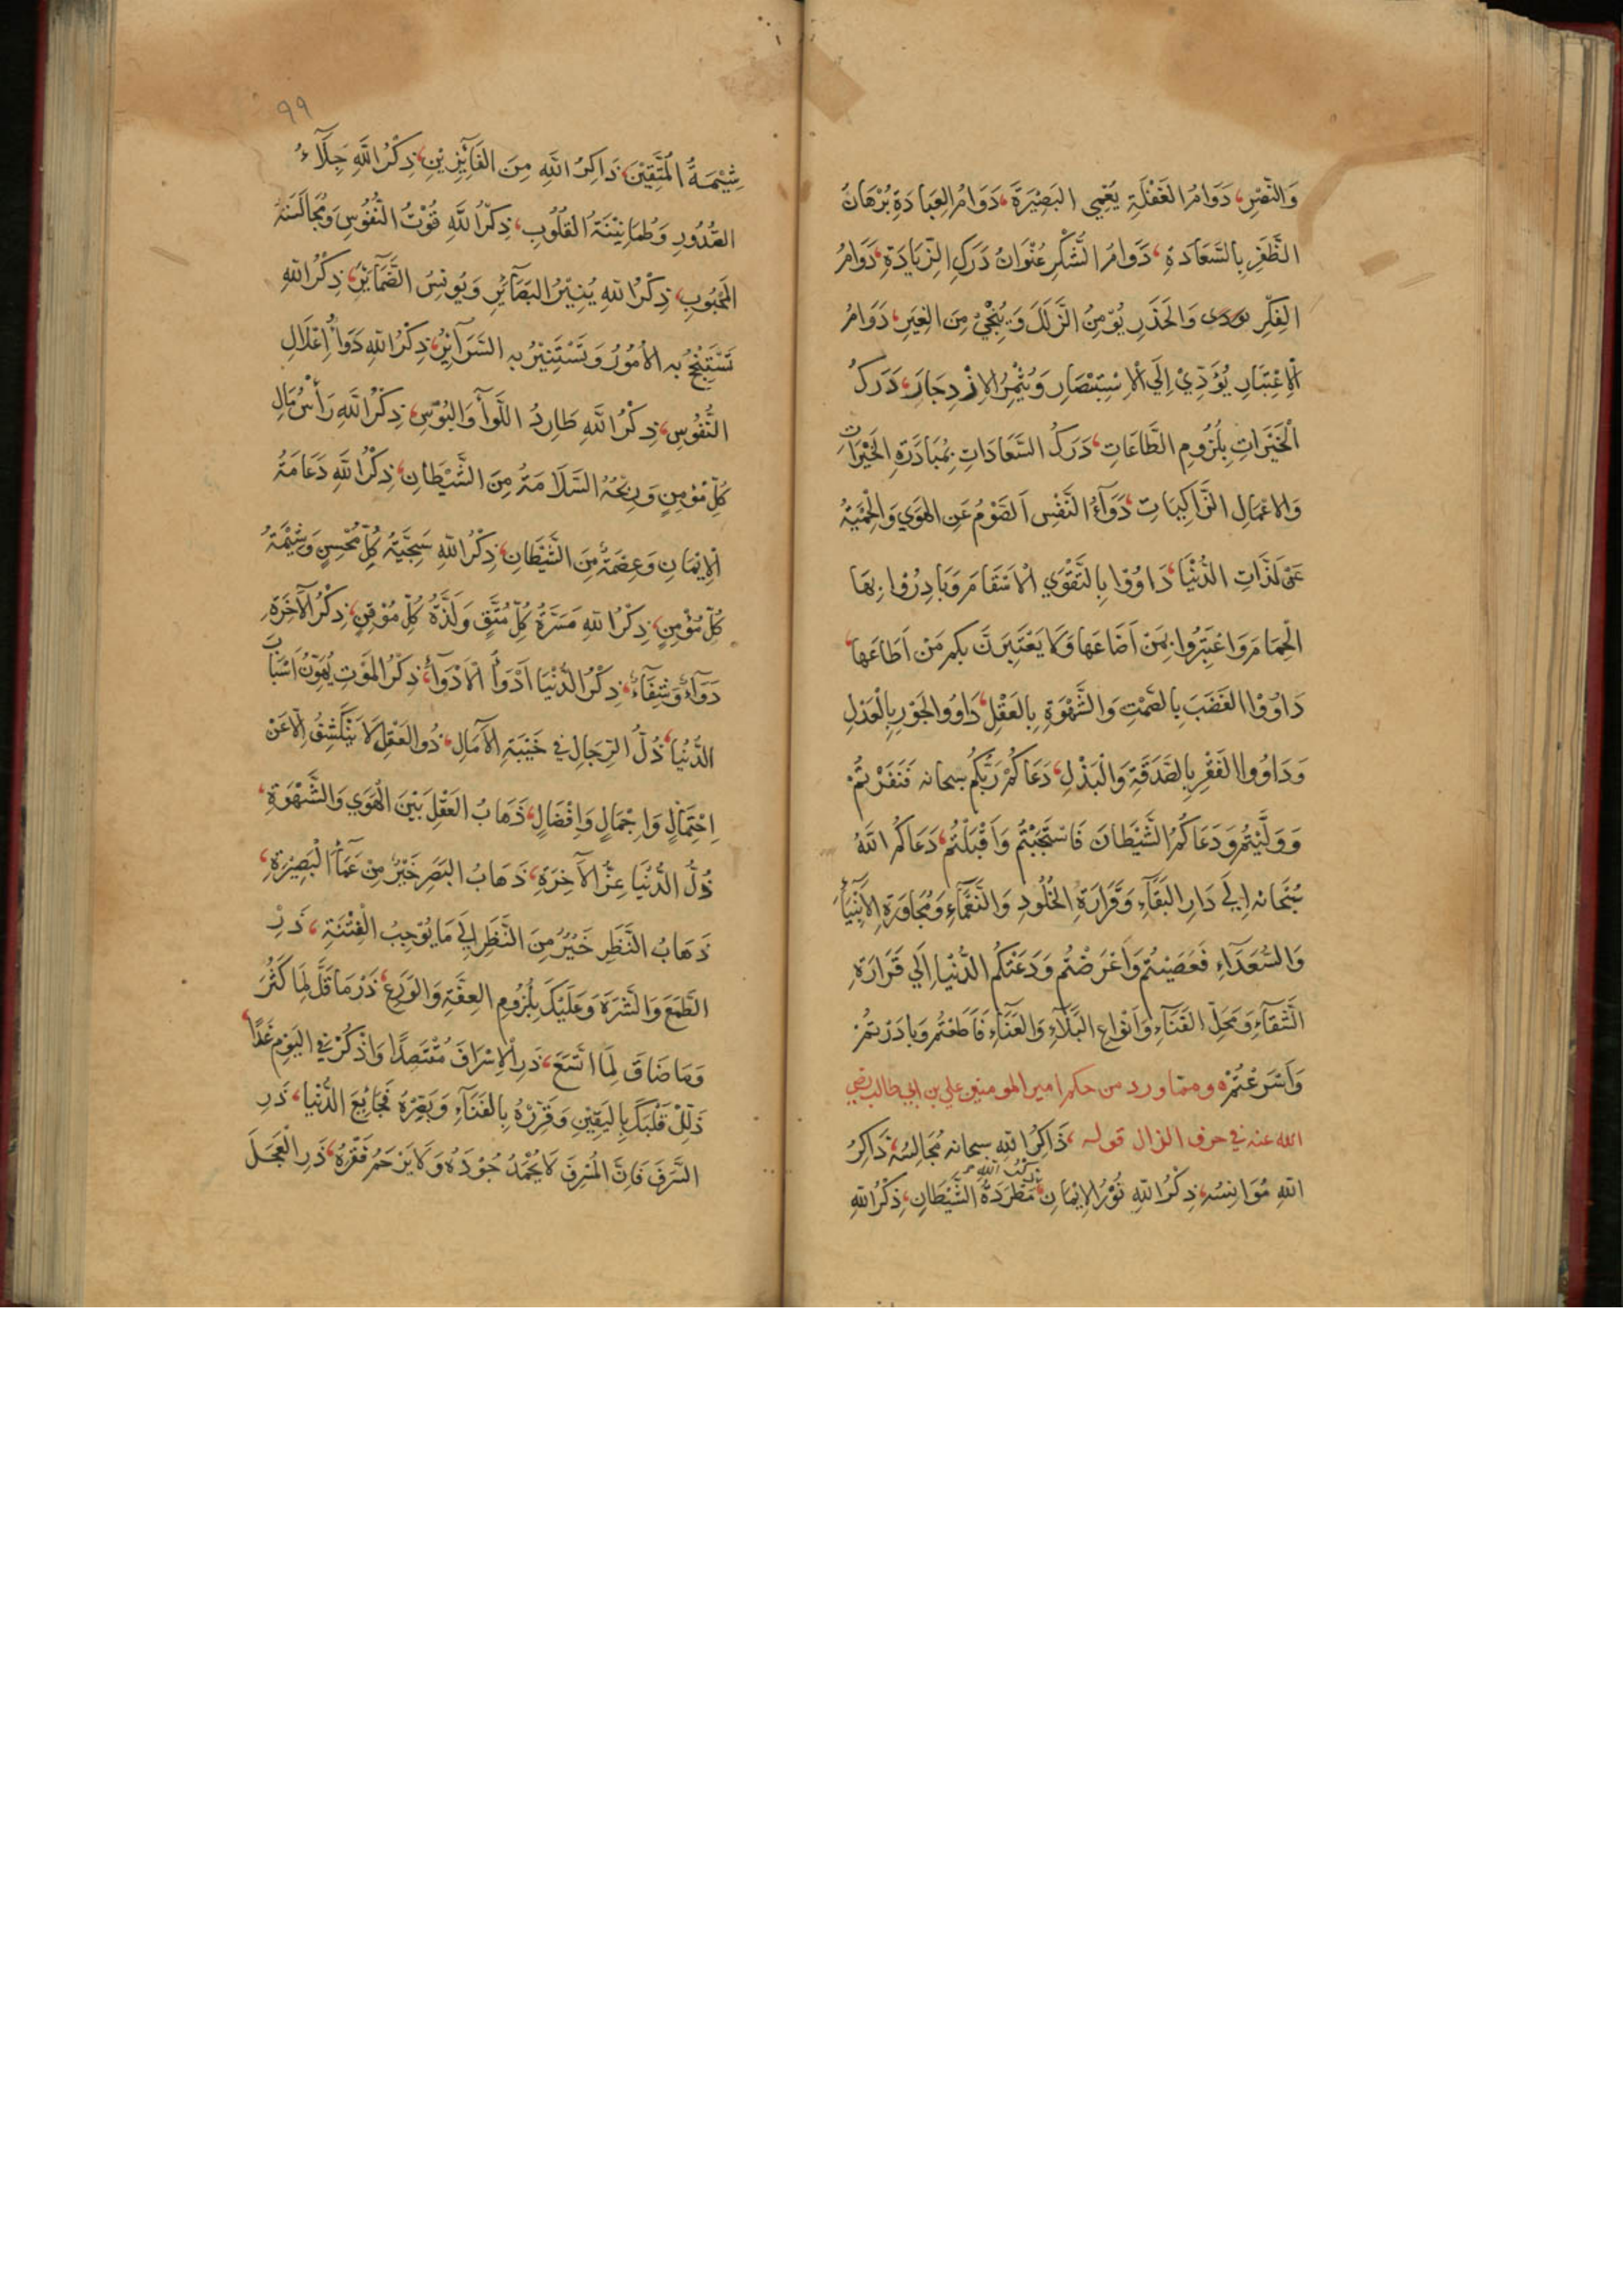 وَالنَّصْرِ، دَوَامُ الغَفْلَةِ يُعْمِي البَصِيْرَةَ، دَوَامُ العِبَادَةِ بُرْهَانُ
الظَّفَرِ بِالسَّعَادَةِ، دَوَامُ الشُّكْرِ عُنْوَانُ دَرَكِ الزِّيَادَةِ، دَوَامُ
الفِكْرِ وَالحَذَرِ يُوْمِنُ الزَّلَلَ وَيُنْجِيْ مِنَ الغِيَرِ، دَوَامُ
الْاِعْتِبَارِ يُؤَدِّيْ اِلَى الْاِسْتِبْصَارِ وَيُثْمِرُ الاِزْدِجَارَ، دَرَكُ
الْخَيْرَاتِ بِلُزُومِ الطَّاعَاتِ، دَرَكُ السَّعَادَاتِ بِمُبَادَرَةِ الخَيْرَاتِ
وَالاَعْمَالِ الزَّاكِيَاتِ، دَوَآءُ النَّفْسِ اَلصَّوْمُ عَنِ الهَوَي وَالْحِمْيَةُ
عَنْ لَذَّاتِ الدُّنْيَا، دَاوُوْا بِالتَّقْوَي الْاَسْقَامَ وَبَادِرُوْا بِهَا
الْحِمَامَ وَاعْتَبِرُوا بِمَنْ اَضَاعَهَا وَلَا يَعْتَبِرَنَّ بِكُمْ مَنْ اَطَاعَهَا،
دَاوُوْا الغَضَبَ بِالصَّمْتِ وَالشَّهْوَةَ بِالعَقْلِ، دَاوُوا الجَوْرَ بِالْعَدْلِ
وَدَاوُوا الفَقْرَ بِالصَّدَقَةِ وَالْبَذْلِ، دَعَاكُمْ رَبُّكُم سبحانه فَنَفَرْتُمْ
وَوَلَّيْتُمْ وَدَعَاكُمُ الشَّيْطَانُ فَاسْتَجَبْتُمْ وَاَقْبَلْتُمْ، دَعَاكُمُ اللهُ
سُبْحَانه اِلَي دَارِ البَقَآءِ وَقَرَارَةِ الخُلُودِ وَالنَّعْمَآءِ وَمُجَاوَرَةِ الاَنْبِيَآءِ
وَالسُّعَدَآءِ فَعَصَيْتُمْ وَاَعْرَضْتُمْ وَدَعَتْكُمُ الدُّنْيَا اِلَي قَرَارَةِ
الشَّقَآءِ وَمَحَلِّ الفَنَآءِ وَاَنْوَاعِ البَلَآءِ وَالعَنَآءِ فَاَطَعْتُمْ وَبَادَرْتُمْ
وَاَسْرَعْتُمْ ه ومما ورد من حكم امير المومنين علي بن ابي طالب رضي
الله عنه في حرف الذال قوله، ذَاكِرُ اللهِ سبحانه مُجَالِسُهُ، ذَاكِرُ
اللهِ مُوَانِسُهُ، ذِكْرُ اللهِ نُوْرُ الاِيْمَانِ، ذِكْرُ اللهِ مَطْرَدَةُ الشَّيْطَانِ، ذِكْرُ اللهِ
٩٩
شِيْمَةُ الْمُتَّقِيْنَ، ذَاكِرُ اللهِ مِنَ الفَآئِزِيْنِ، ذِكْرُ اللهِ جِلَآءُ
الصُّدُورِ وَطُمَانِيْنَةُ القُلُوبِ، ذِكْرُ اللهِ قُوْتُ النُّفُوْسِ وَمُجَالَسَةُ
المَحْبُوبِ، ذِكْرُ اللهِ يُنِيْرُ البَصَآئِرَ وَيُونِسُ الضَّمَآئِرَ، ذِكْرُ اللهِ
تُسْتَنْجَحُ بِهِ الاُمُوْرُ وَتَسْتَنِيْرُ بِهِ السَّرَآئِرُ، ذِكْرُ اللهِ دَوَآءُ اِعْلَالِ
النُّفُوْسِ، ذِكْرُ اللهِ طَارِدُ اللَّوَآءِ وَالبُوْسِ، ذِكْرُ اللهِ رَأْسُ مَالِ
كُلِّ مُوْمِنٍ وَرِبْحُهُ السَّلَامَةُ مِنَ الشَّيْطَانِ، ذِكْرُ اللهِ دَعَامَةُ
الْاِيْمَانِ وَعِصْمَةٌ مِنَ الشَّيْطَانِ، ذِكْرُ اللهِ سَجِيَّةُ كُلِّ مُحْسِنٍ وَشِيْمَةُ
كُلِّ مُؤْمِنٍ، ذِكْرُ اللهِ مَسَرَّةُ كُلِّ مُتَّقٍ وَلَذَّةُ كُلِّ مُوْقِنٍ، ذِكْرُ الآخِرَةِ
دَوَآءٌ وَشِفَآءٌ، ذِكْرُ الدُّنْيَا اَدْوَاُ الْاَدْوَآءِ، ذِكْرُ المَوْتِ يُهَوِّنُ اَسْبَابَ
الدُّنْيَا، ذُلُّ الرِّجَالِ فِي خَيْبَةِ الآمَالِ، ذُو العَقْلِ لَا يَنْكَشِفُ اِلَّا عَنْ
اِحْتِمَالٍ وَاِجْمَالٍ وَاِفْضَالٍ، ذَهَابُ العَقْلِ بَيْنَ الْهَوَي وَالشَّهْوَةِ،
ذُلُّ الدُّنْيَا عِزُّ الآخِرَةِ، ذَهَابُ البَصَرِ خَيْرٌ مِنْ عَمَآءِ الْبَصِيْرَةِ،
ذَهَابُ النَّظَرِ خَيْرٌ مِنَ النَّظَرِ اِلَي مَا يُوْجِبُ الْفِتْنَةِ، ذَرِ
الطَّمَعَ وَالشَّرَهَ وَعَلَيْكَ بِلُزُومِ العِفَّةِ وَالوَرَعِ، ذَرْ مَا قَلَّ لِمَا كَثُرَ
وَمَا ضَاقَ لِمَا اتَّسَعَ، ذَرِ الْاِسْرَافَ مُقْتَصِدًا وَاذْكُرْ فِي اليَوْمِ غَدًا،
ذَلِّلْ قَلْبَكَ بِاليَقِيْنِ وَقَرِّرْهُ بِالفَنَآءِ وَبَصِّرْهُ فَجَائِعَ الدُّنْيَا، ذَرِ
السَّرَفَ فَاِنَّ الْمُسْرِفَ لَا يُحْمَدُ جُوْدُهُ وَلَا يُرْحَمُ فَقْرُهُ، ذَرِ الْعَجَلَ